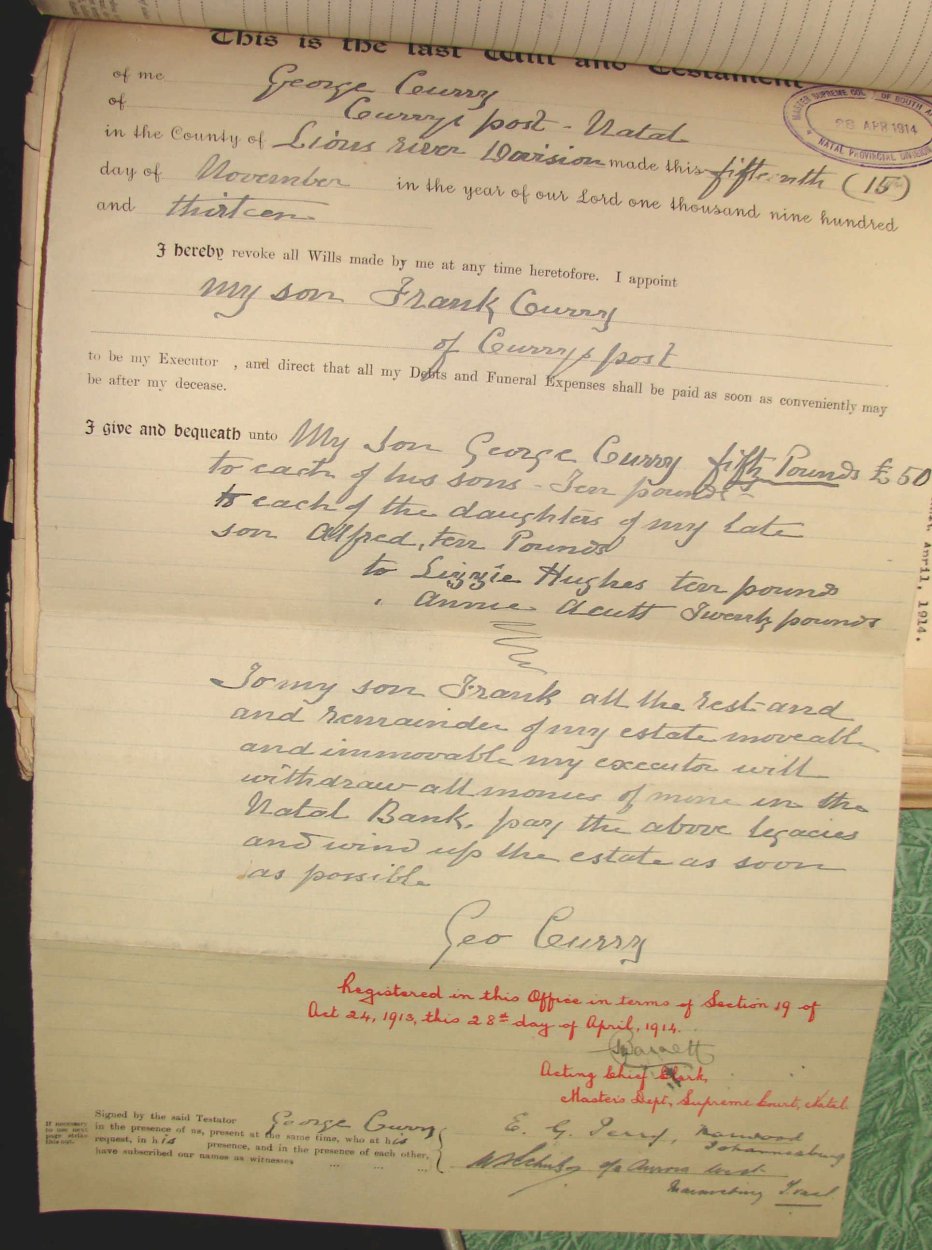 This is the last Will and Testament
of me George Curry
of Currys post - Natal
MASTER SUPREME COURT OF SOUTH AFRICA
28 APR 1914
NATAL PROVINCIAL DIVISION
in the County of Lions river Division made this fifteenth (15th)
day of November in the year of our Lord one thousand nine hundred
and thirteen
I hereby revoke all Wills made by me at any time heretofore. I appoint
My son Frank Curry
of Currys post
to be my Executor , and direct that all my Debts and Funeral Expenses shall be paid as soon as conveniently may
be after my decease.
I give and bequeath unto My Son George Curry fifty Pounds £50
to each of his sons - Ten pounds
to each of the daughters of my late
son Alfred, ten Pounds
to Lizzie Hughes ten pounds
Annie Acutt Twenty pounds
To my son Frank all the rest and
and remainder of my estate moveable
and immovable my executor will
withdraw all monies of mine in the
Natal Bank, pay the above legacies
and wind up the estate as soon
as possible
Geo Curry
April, 1914.
Registered in this Office in terms of Section 19 of
Act 24, 1913, this 28th day of April, 1914.
Acting Chief Clerk,
Master's Dept, Supreme Court, Natal
If necessary
to use next
page strike
this out.
Signed by the said Testator George Curry
in the presence of us, present at the same time, who at his
request, in his presence, and in the presence of each other,
have subscribed our names as witnesses ... ... ...
E. G. Terry,
Johannesburg